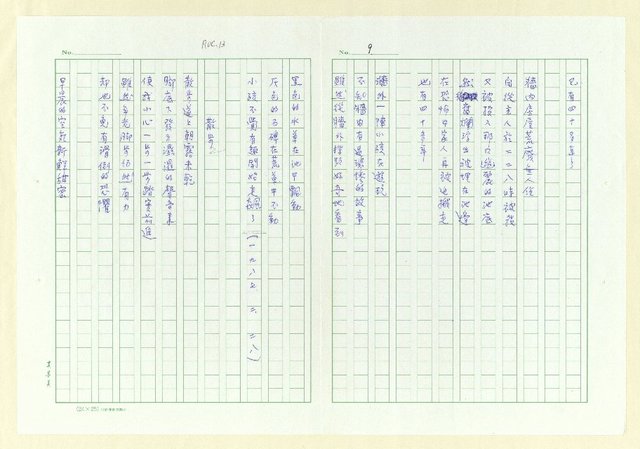 No. 9
已有四十多年了
牆內 荒廢無人住
自從主人於二二八時被殺
又被投入那片 的池底
然後腐爛浮出被埋在池邊
在恐怕中家人再被迫搬走
也有四十多年
牆外一陣小孩在遊玩
不知牆內有過悽慘的故事
雖然從牆外探頭好奇地看到
No.
黑色的水草在池中飄動
灰色的石碑在荒草中不動
小孩不覺有趣開始走 了(一九八七.二.二八)
散步
散步道上朝露未乾
腳底下發出濕濕的聲音來
使我小心一步一步踏實前進
雖然 老腳步仍然有力
却也不免有滑倒的恐懼
早晨的空氣新鮮甜蜜
(20×25)